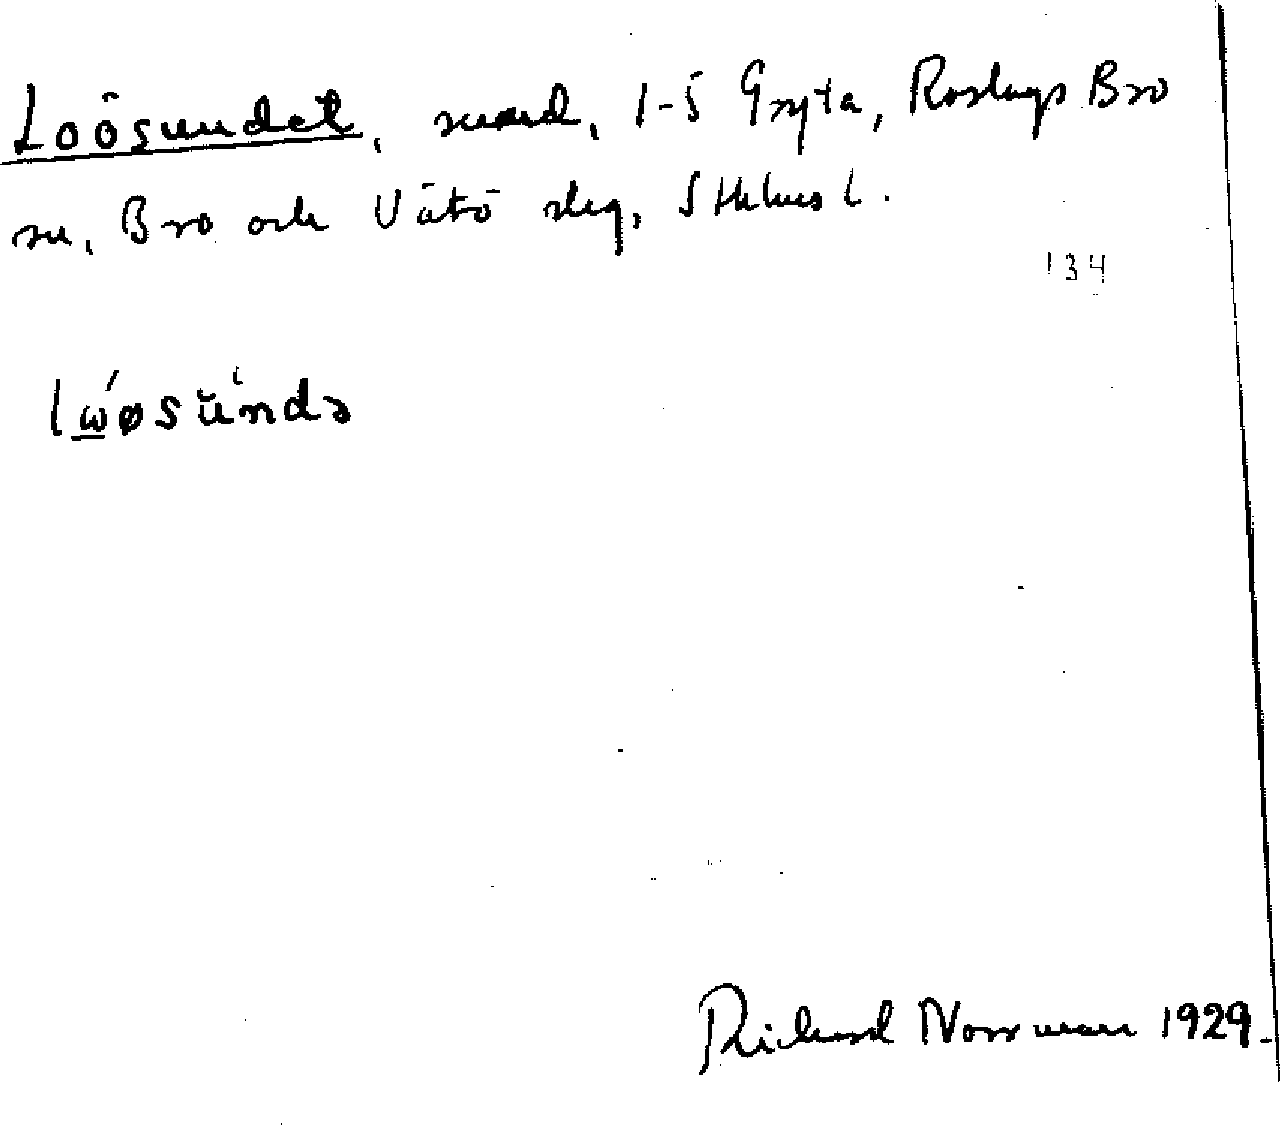 Loösundet, sund, 1-5 Gryta, Roslags Bro
sn, Bro och Vätö slg, Sthlms l.
134
lώøsŭ̀ndə
Richard Norrman 1929.